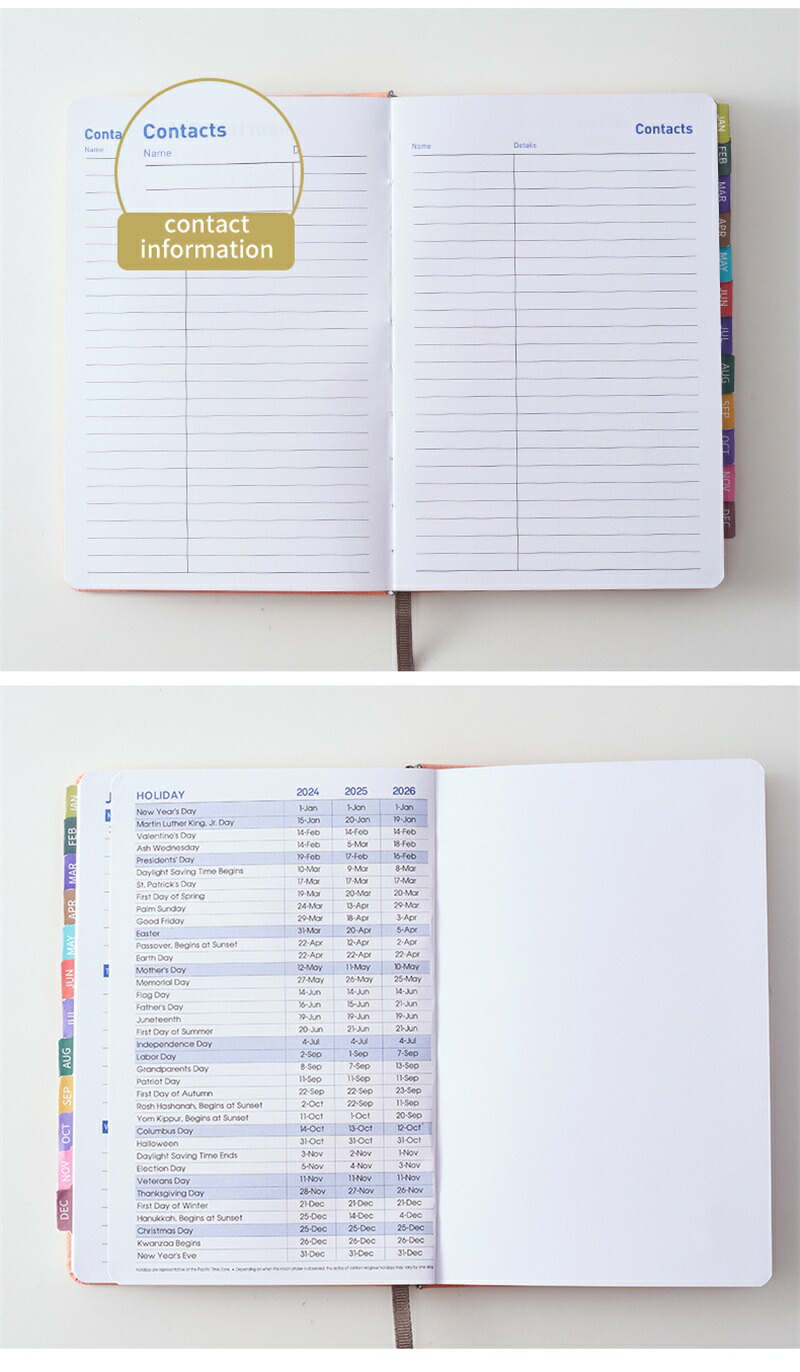 Conta
Name
Contacts
Name
D
contact
information
Contacts
Name Details
JAN
FEB
MAR
APR
MAY
JUN
JUL
AUG
SEP
OCT
NOV
DEC
HOLIDAY 2024 2025 2026
New Year's Day 1-Jan 1-Jan 1-Jan
Martin Luther King, Jr. Day 15-Jan 20-Jan 19-Jan
Valentine's Day 14-Feb 14-Feb 14-Feb
Ash Wednesday 14-Feb 5-Mar 18-Feb
Presidents' Day 19-Feb 17-Feb 16-Feb
Daylight Saving Time Begins 10-Mar 9-Mar 8-Mar
St. Patrick's Day 17-Mar 17-Mar 17-Mar
First Day of Spring 19-Mar 20-Mar 20-Mar
Palm Sunday 24-Mar 13-Apr 29-Mar
Good Friday 29-Mar 18-Apr 3-Apr
Easter 31-Mar 20-Apr 5-Apr
Passover, Begins at Sunset 22-Apr 12-Apr 2-Apr
Earth Day 22-Apr 22-Apr 22-Apr
Mother's Day 12-May 11-May 10-May
Memorial Day 27-May 26-May 25-May
Flag Day 14-Jun 14-Jun 14-Jun
Father's Day 16-Jun 15-Jun 21-Jun
Juneteenth 19-Jun 19-Jun 19-Jun
First Day of Summer 20-Jun 21-Jun 21-Jun
Independence Day 4-Jul 4-Jul 4-Jul
Labor Day 2-Sep 1-Sep 7-Sep
Grandparents Day 8-Sep 7-Sep 13-Sep
Patriot Day 11-Sep 11-Sep 11-Sep
First Day of Autumn 22-Sep 22-Sep 23-Sep
Rosh Hashanah, Begins at Sunset 2-Oct 22-Sep 11-Sep
Yom Kippur, Begins at Sunset 11-Oct 1-Oct 20-Sep
Columbus Day 14-Oct 13-Oct 12-Oct
Halloween 31-Oct 31-Oct 31-Oct
Daylight Saving Time Ends 3-Nov 2-Nov 1-Nov
Election Day 5-Nov 4-Nov 3-Nov
Veterans Day 11-Nov 11-Nov 11-Nov
Thanksgiving Day 28-Nov 27-Nov 26-Nov
First Day of Winter 21-Dec 21-Dec 21-Dec
Hanukkah, Begins at Sunset 25-Dec 14-Dec 4-Dec
Christmas Day 25-Dec 25-Dec 25-Dec
Kwanzaa Begins 26-Dec 26-Dec 26-Dec
New Year's Eve 31-Dec 31-Dec 31-Dec
Holidays are representative of the Pacific Time Zone. • Depending on when the moon phase is observed, the dates of certain religious holidays may vary by one day
JAN
FEB
MAR
APR
MAY
JUN
JUL
AUG
SEP
OCT
NOV
DEC